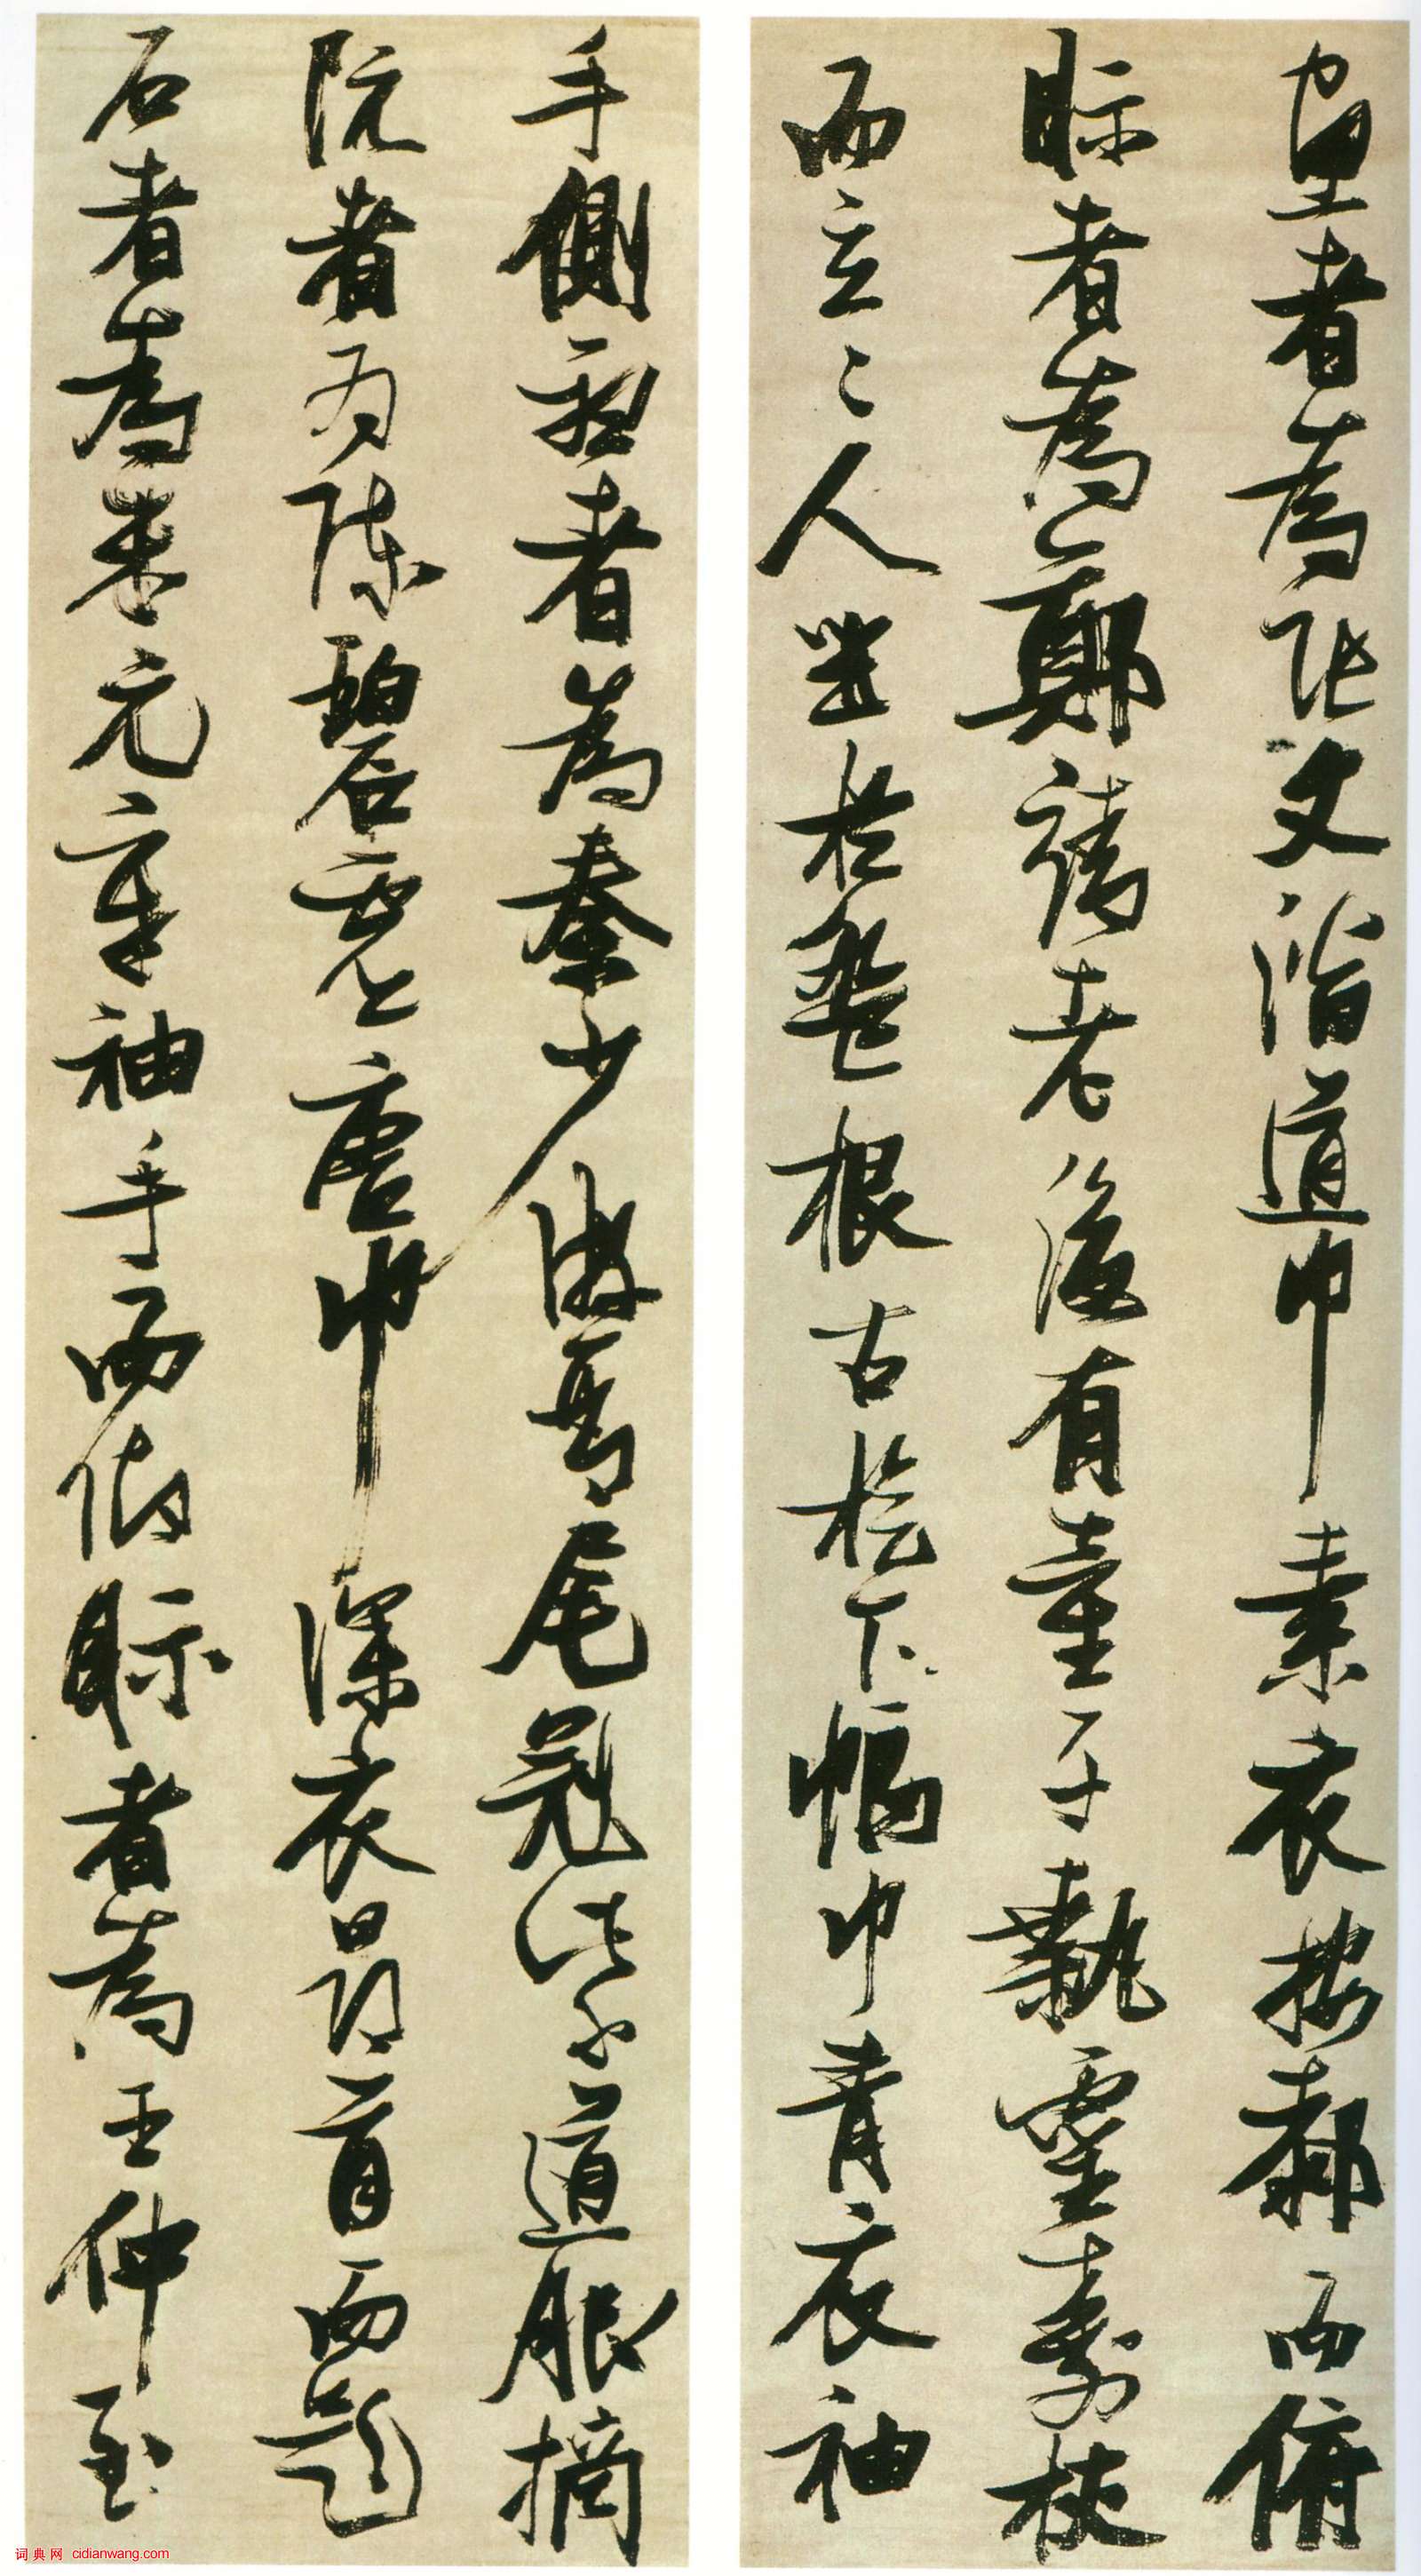 望者為張文潛道巾素衣按膝而俯
視者為鄭靖老後有童子執靈壽杖
而立二人坐於盤根古檜下幅巾青衣袖
手側聽者為秦少游琴尾冠紫道服摘
阮者為陳碧虛唐巾深衣昂首而題
石者為米元章袖手而仰視者為王仲至
词典网 cidianwang.com